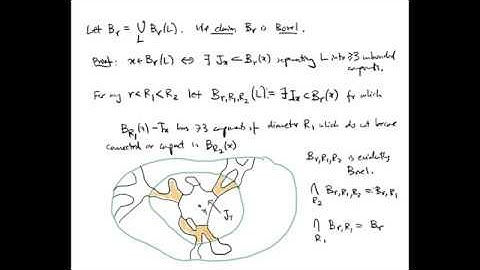 Let Bᵣ = ⋃_L Bᵣ(L). We claim Bᵣ is Borel.
Proof: x ∈ Bᵣ(L) ⇔ ∃ Jₓ ⊂ Bᵣ(x) separating L into ≥3 unbounded
For any r < R₁ < R₂ let B_{r,R₁,R₂}(L) = ∃ Jₓ ⊂ Bᵣ(x) for which
B_{R₁}(x) − Jₓ has ≥3 components of diameter R₁ which do not become
connected or compact in B_{R₂}(x)
B_{r,R₁,R₂} is evidently
Borel.
⋂_{R₂} B_{r,R₁,R₂} = B_{r,R₁}
⋂_{R₁} B_{r,R₁} = Bᵣ